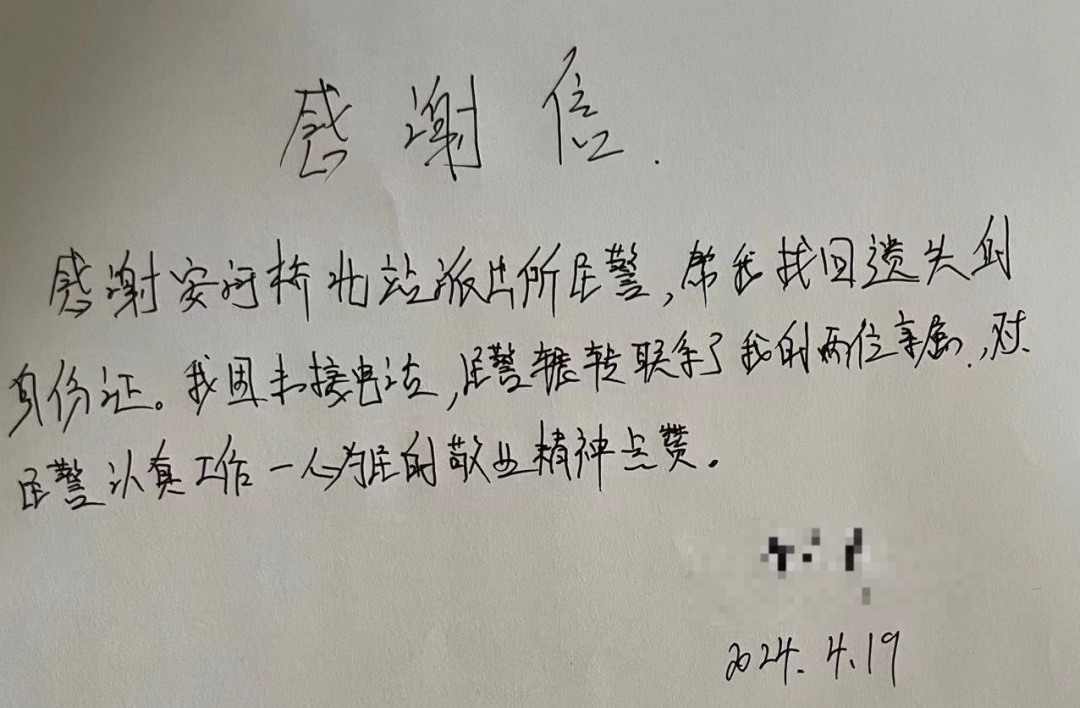 感谢信.
感谢安河桥北站派出所民警,帮我找回遗失的
身份证。我因未接电话,民警辗转联系了我的两位亲属,对
民警认真工作一心为民的敬业精神点赞。
2024.4.19